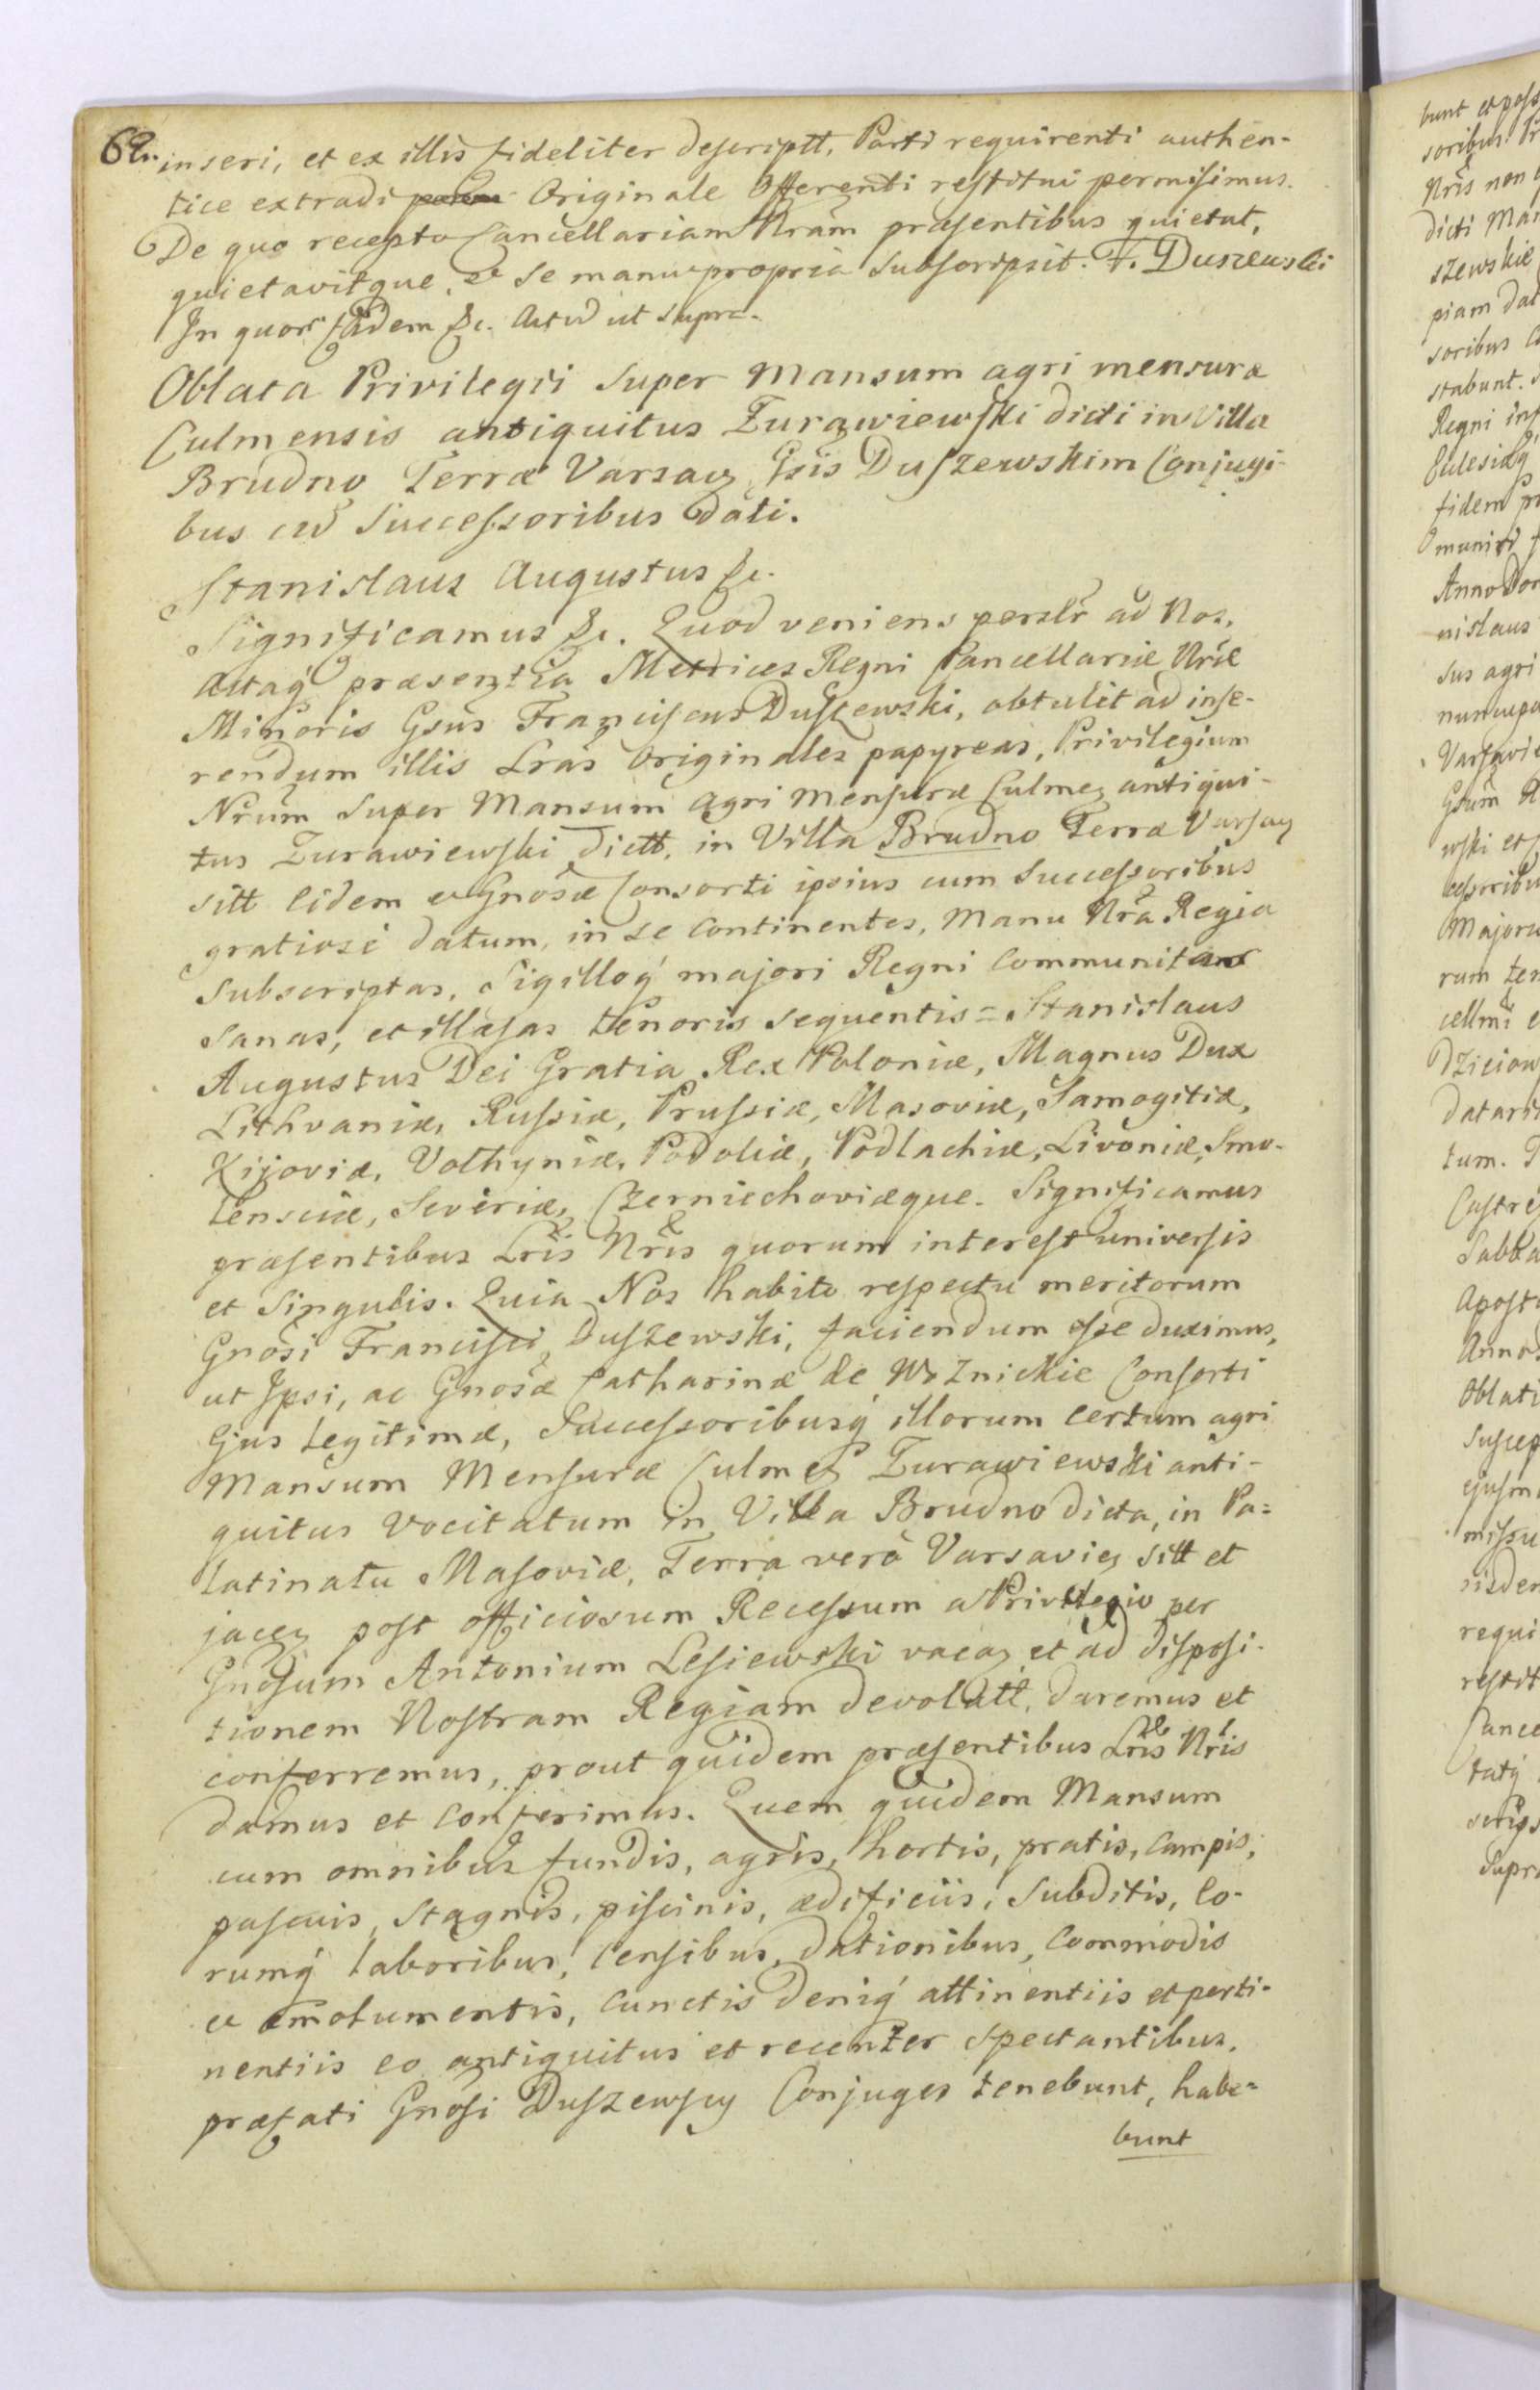 62.
inseri, et ex illis fideliter descriptt. Parti requirenti authen-
tice extradi Originale Offerenti restitui permisimus.
De quo recepto Cancellariam Nram præsentibus quietat,
quietavitque, et se manu propria subscripsit. F. Duszewski
In quor fidem &c. Actũ ut supra.
Oblata Privilegii super Mansum agri mensuræ
Culmensis antiquitus Zurawiewski dicti in Villa
Brudno Terræ Varsaẽn Gsis Duszewskim Conjugi-
bus cũ Successoribus dati.
Stanislaus Augustus &c.
Significamus &c. Quod veniens persłr ad Nos,
Actaq́ præsentia Metrices Regni Cancellariæ Nræ
Minoris Gsus Franciscus Duszewski, obtulit ad inse-
rendum illis Lras Originales papyreas, Privilegium
Nrum super Mansum Agri Mensuræ Culmeñ antiqui-
tus Zurawiewski dictt. in Villa Brudno Terræ Varsaẽn
sitt Eidem et Gnosæ Consorti ipsius cum Successoribus
gratiose datum, in se continentes, Manu Nra Regia
Subscriptas, Sigilloq́ majori Regni Communitas
sanas, et illæsas tenoris sequentis = Stanislaus
Augustus Dei Gratia Rex Poloniæ, Magnus Dux
Lithvaniæ, Russiæ, Prussiæ, Masoviæ, Samogitiæ,
Kijoviæ, Volhyniæ, Podoliæ, Podlachiæ, Livoniæ, Smo-
lensciæ, Severiæ, Czerniechoviæque. Significamus
præsentibus Lris Nris quorum interest universis
et singulis. Quia Nos habito respectu meritorum
Gnosi Francisci Duszewski, faciendum esse duximus,
ut Ipsi, ac Gnosæ Catharinæ de Woznickie Consorti
Ejus legitimæ, Successoribusq́ illorum certum agri
Mansum Mensuræ Culmeñ Zurawiewski anti-
quitus vocitatum in Villa Brudno dicta, in Pa=
latinatu Masoviæ, Terra vero Varsavieñ sitt et
jaceñ post officiosum Recessum a Privilegio per
Gnosum Antonium Lesiewski vacañ et ad disposi-
tionem Nostram Regiam devolutt. daremus et
conferremus, prout quidem præsentibus Lris Nris
damus et conferimus. Quem quidem Mansum
cum omnibus fundis, agris, hortis, pratis, campis,
pascuis, stagnis, piscinis, ædificiis, subditis, eo-
rumq́ laboribus, censibus, dationibus, commodis
et emolumentis, cunctis deniq́ attinentiis et perti-
nentiis eo antiquitus et recenter spectantibus,
præfati Gnosi Duszewscy Conjuges tenebunt, habe=
bunt